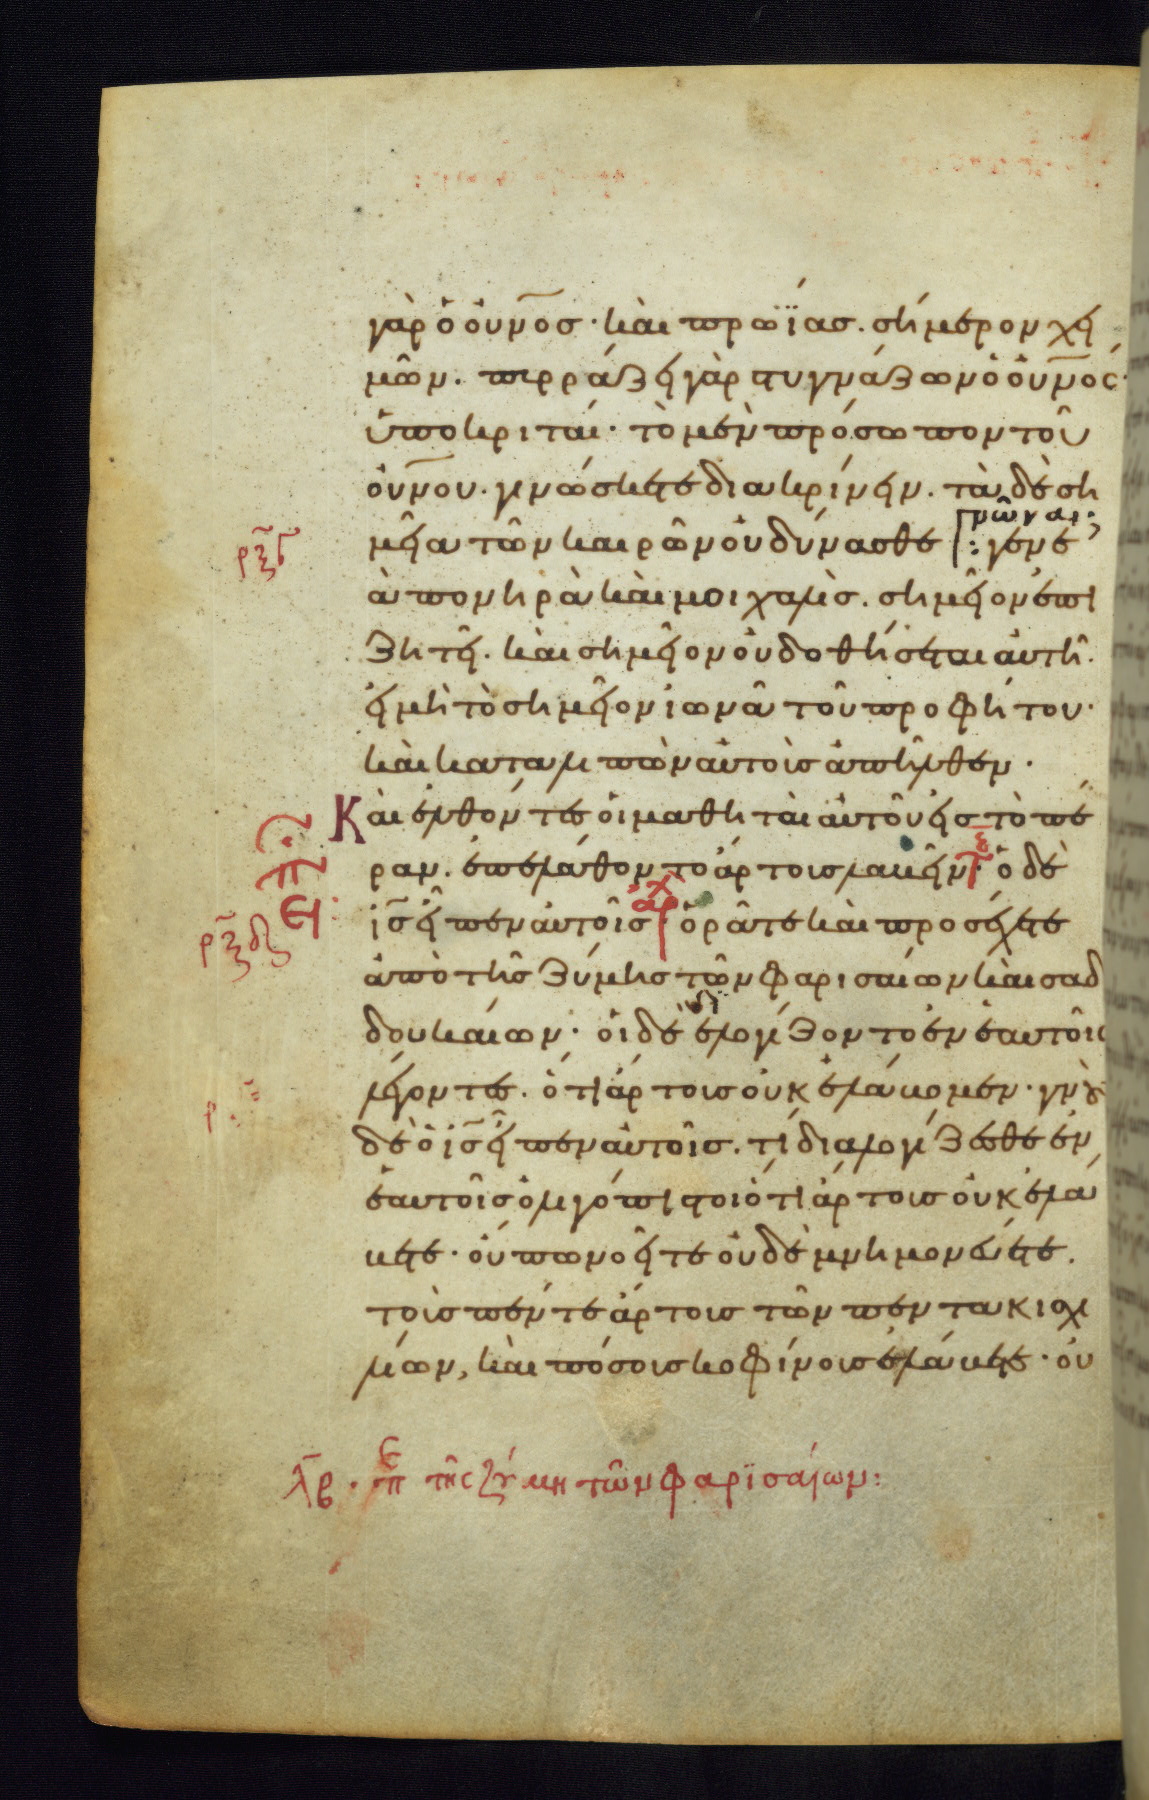 γὰρ ὁ οὐνοσ· καὶ πρωΐασ. σήμερον χει
μῶν. πυρράζει γὰρ στυγνάζων ὁ οὐνος·
ὑποκριταί· τὸ μὲν πρόσωπον τοῦ
οὐνου. γινώσκετε διακρίνειν. τὰ δὲ ση
γνῶναι:
ρξγ μεῖα τῶν καιρῶν οὐ δύνασθε : γενε
ὰ πονηρὰ καὶ μοιχαλὶσ. σημεῖον ἐπι
ζητεῖ. καὶ σημεῖον οὐ δοθήσεται αὐτῆ.
εἰ μὴ τὸ σημεῖον ἰωνᾶ τοῦ προφήτου·
καὶ καταλιπὼν αὐτοὺσ ἀπῆλθεν·
Καὶ ἐλθόντες οἱ μαθηταὶ αὐτοῦ εἰσ τὸ πέ
ραν. ἐπελάθοντο ἄρτουσ λαβεῖν· ὁ δὲ
ισ εἶπεν αὐτοῖσ· ὁρᾶτε καὶ προσέχετε
ρξδ ἀπὸ τῆσ ζύμησ τῶν φαρισαίων καὶ σαδ
δουκαίων· οἱ δὲ διελογίζοντο ἐν ἑαυτοῖσ
λέγοντες. ὅτι ἄρτουσ οὐκ ἐλάβομεν· γνοὺ
δὲ ὁ ισ εἶπεν αὐτοῖσ. τί διαλογίζεσθε ἐν
ἑαυτοῖσ ὀλιγόπιστοι ὅτι ἄρτουσ οὐκ ἐλά
βετε· οὔπω νοεῖτε οὐδὲ μνημονεύετε.
τοὺσ πέντε ἄρτουσ τῶν πεντακισχι
λίων, καὶ πόσουσ κοφίνουσ ἐλάβετε· οὐ
λβ· πε τῆς ζύμη τῶν φαρϊσαίων: